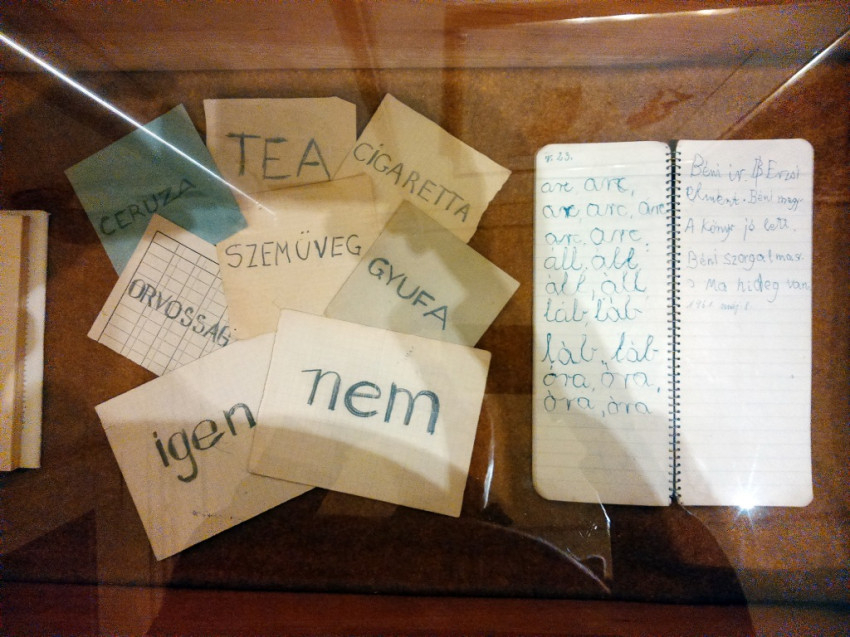 TEA
CIGARETTA
CERUZA
SZEMÜVEG
GYUFA
ORVOSSÁG
nem
igen
arc, arc,
arc, arc, arc
arc, arc,
áll, áll
áll, áll
láb, láb
láb, láb
óra, óra,
óra, óra
Béni ír B Erzsi
elment. Béni
A könyv jó lett.
Béni szorgalmas.
Ma hideg van.
1961